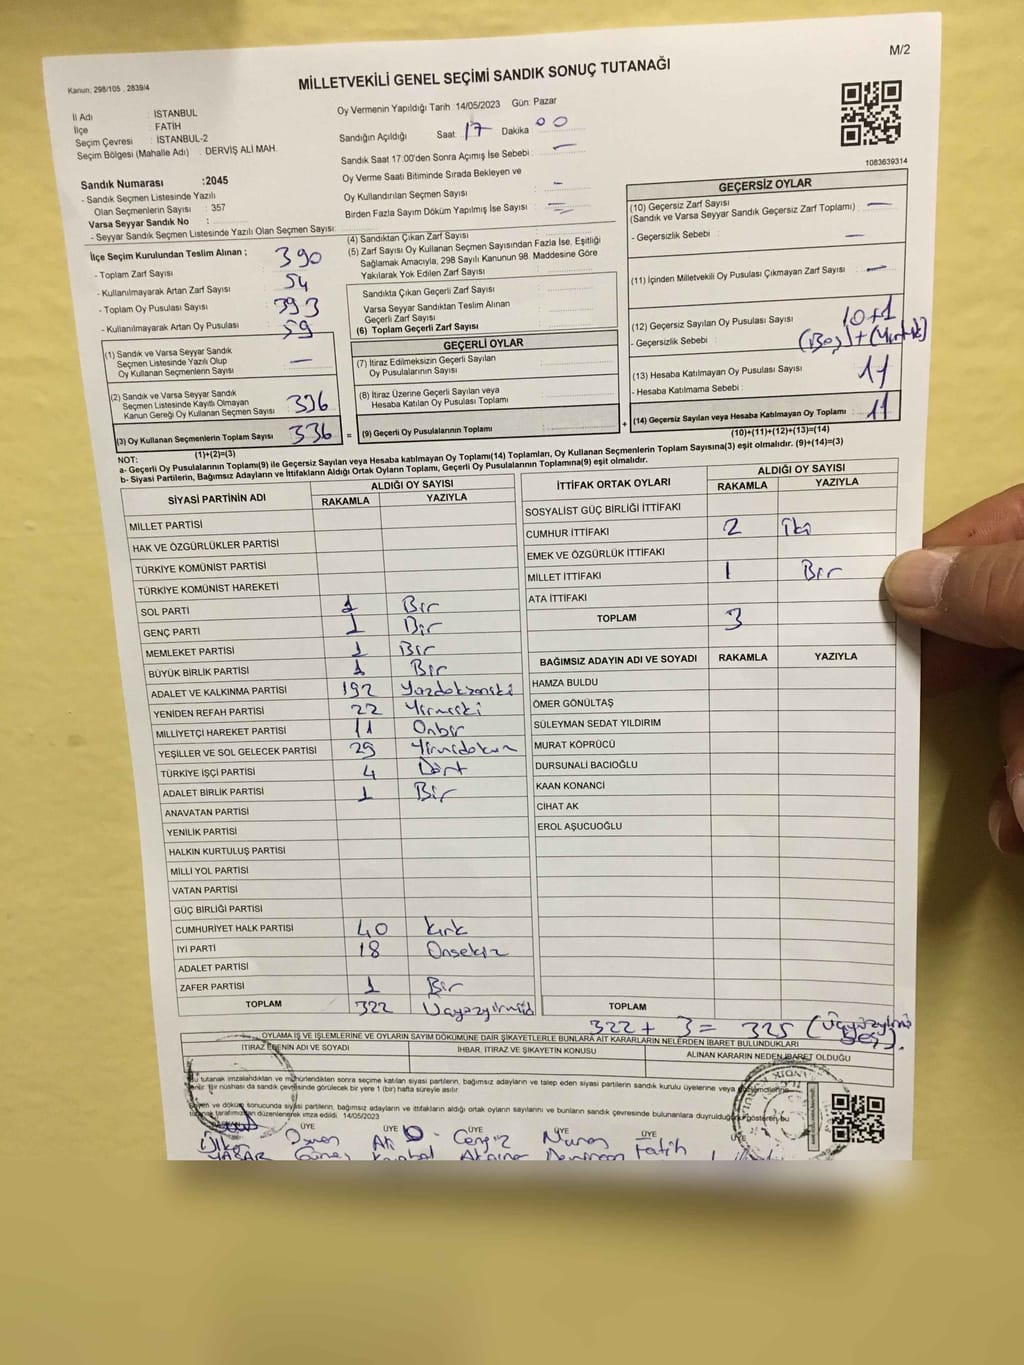 M/2
Kanun: 298/105 , 2839/4
MİLLETVEKİLİ GENEL SEÇİMİ SANDIK SONUÇ TUTANAĞI
İl Adı : İSTANBUL
İlçe : FATİH
Seçim Çevresi : İSTANBUL-2
Seçim Bölgesi (Mahalle Adı) : DERVİŞ ALİ MAH.
Oy Vermenin Yapıldığı Tarih 14/05/2023 Gün: Pazar
Sandığın Açıldığı Saat: 17 Dakika 00
Sandık Saat 17:00'den Sonra Açımış İse Sebebi : —
Oy Verme Saati Bitiminde Sırada Bekleyen ve
Oy Kullandırılan Seçmen Sayısı : –
Birden Fazla Sayım Döküm Yapılmış İse Sayısı :
1083639314
Sandık Numarası :2045
- Sandık Seçmen Listesinde Yazılı
Olan Seçmenlerin Sayısı : 357
Varsa Seyyar Sandık No :
- Seyyar Sandık Seçmen Listesinde Yazılı Olan Seçmen Sayısı :
İlçe Seçim Kurulundan Teslim Alınan ;
- Toplam Zarf Sayısı : 390
- Kullanılmayarak Artan Zarf Sayısı : 54
- Toplam Oy Pusulası Sayısı : 393
- Kullanılmayarak Artan Oy Pusulası : 59
(1) Sandık ve Varsa Seyyar Sandık
Seçmen Listesinde Yazılı Olup
Oy Kullanan Seçmenlerin Sayısı : —
(2) Sandık ve Varsa Seyyar Sandık
Seçmen Listesinde Kayıtlı Olmayan
Kanun Gereği Oy Kullanan Seçmen Sayısı : 336
(3) Oy Kullanan Seçmenlerin Toplam Sayısı 336
(1)+(2)=(3)
(4) Sandıktan Çıkan Zarf Sayısı :
(5) Zarf Sayısı Oy Kullanan Seçmen Sayısından Fazla İse, Eşitliği
Sağlamak Amacıyla, 298 Sayılı Kanunun 98. Maddesine Göre
Yakılarak Yok Edilen Zarf Sayısı :
Sandıkta Çıkan Geçerli Zarf Sayısı :
Varsa Seyyar Sandıktan Teslim Alınan
Geçerli Zarf Sayısı :
(6) Toplam Geçerli Zarf Sayısı :
GEÇERLİ OYLAR
(7) İtiraz Edilmeksizin Geçerli Sayılan
Oy Pusulalarının Sayısı :
(8) İtiraz Üzerine Geçerli Sayılan veya
Hesaba Katılan Oy Pusulası Toplamı :
= (9) Geçerli Oy Pusulalarının Toplamı :
GEÇERSİZ OYLAR
(10) Geçersiz Zarf Sayısı : —
(Sandık ve Varsa Seyyar Sandık Geçersiz Zarf Toplamı)
- Geçersizlik Sebebi : —
(11) İçinden Milletvekili Oy Pusulası Çıkmayan Zarf Sayısı : —
(12) Geçersiz Sayılan Oy Pusulası Sayısı : 10+1
- Geçersizlik Sebebi :
(13) Hesaba Katılmayan Oy Pusulası Sayısı : 11
- Hesaba Katılmama Sebebi :
+ (14) Geçersiz Sayılan veya Hesaba Katılmayan Oy Toplamı : 11
(10)+(11)+(12)+(13)=(14)
NOT:
a- Geçerli Oy Pusulalarının Toplamı(9) ile Geçersiz Sayılan veya Hesaba Katılmayan Oy Toplamı(14) Toplamları, Oy Kullanan Seçmenlerin Toplam Sayısına(3) eşit olmalıdır. (9)+(14)=(3)
b- Siyasi Partilerin, Bağımsız Adayların ve İttifakların Aldığı Ortak Oyların Toplamı, Geçerli Oy Pusulalarının Toplamına(9) eşit olmalıdır.
SİYASİ PARTİNİN ADI ALDIĞI OY SAYISI
RAKAMLA YAZIYLA
MİLLET PARTİSİ
HAK VE ÖZGÜRLÜKLER PARTİSİ
TÜRKİYE KOMÜNİST PARTİSİ
TÜRKİYE KOMÜNİST HAREKETİ
SOL PARTİ 1 Bir
GENÇ PARTİ 1 Bir
MEMLEKET PARTİSİ 1 Bir
BÜYÜK BİRLİK PARTİSİ 1 Bir
ADALET VE KALKINMA PARTİSİ 192 Yüzdoksaniki
YENİDEN REFAH PARTİSİ 22 Yirmiiki
MİLLİYETÇİ HAREKET PARTİSİ 11 Onbir
YEŞİLLER VE SOL GELECEK PARTİSİ 29 Yirmidokuz
TÜRKİYE İŞÇİ PARTİSİ 4 Dört
ADALET BİRLİK PARTİSİ 1 Bir
ANAVATAN PARTİSİ
YENİLİK PARTİSİ
HALKIN KURTULUŞ PARTİSİ
MİLLİ YOL PARTİSİ
VATAN PARTİSİ
GÜÇ BİRLİĞİ PARTİSİ
CUMHURİYET HALK PARTİSİ 40 Kırk
İYİ PARTİ 18 Onsekiz
ADALET PARTİSİ
ZAFER PARTİSİ 1 Bir
TOPLAM 322
İTTİFAK ORTAK OYLARI ALDIĞI OY SAYISI
RAKAMLA YAZIYLA
SOSYALİST GÜÇ BİRLİĞİ İTTİFAKI
CUMHUR İTTİFAKI 2 İki
EMEK VE ÖZGÜRLÜK İTTİFAKI
MİLLET İTTİFAKI 1 Bir
ATA İTTİFAKI
TOPLAM 3
BAĞIMSIZ ADAYIN ADI VE SOYADI RAKAMLA YAZIYLA
HAMZA BULDU
ÖMER GÖNÜLTAŞ
SÜLEYMAN SEDAT YILDIRIM
MURAT KÖPRÜCÜ
DURSUNALİ BACIOĞLU
KAAN KONANCİ
CİHAT AK
EROL AŞUCUOĞLU
TOPLAM
322 + 3 = 325 (Üçyüzyirmi
beş).
OYLAMA İŞ VE İŞLEMLERİNE VE OYLARIN SAYIM DÖKÜMÜNE DAİR ŞİKAYETLERLE BUNLARA AİT KARARLARIN NELERDEN İBARET BULUNDUKLARI
İTİRAZ EDENİN ADI VE SOYADI İHBAR, İTİRAZ VE ŞİKAYETİN KONUSU ALINAN KARARIN NEDEN İBARET OLDUĞU
Bu tutanak imzalandıktan ve mühürlendikten sonra seçime katılan siyasi partilerin, bağımsız adayların ve talep eden siyasi partilerin sandık kurulu üyelerine veya
bir nüshası da sandık çevresinde görülecek bir yere 1 (bir) hafta süreyle asılır.
ve döküm sonucunda siyasi partilerin, bağımsız adayların ve ittifakların aldığı ortak oyların sayılarını ve bunların sandık çevresinde bulunanlara duyrulduğunu gösteren bu
tarafımızdan düzenlenerek imza edildi. 14/05/2023
ÜYE ÜYE ÜYE ÜYE ÜYE ÜYE
Cengiz Fatih
YAŞAR Güneş